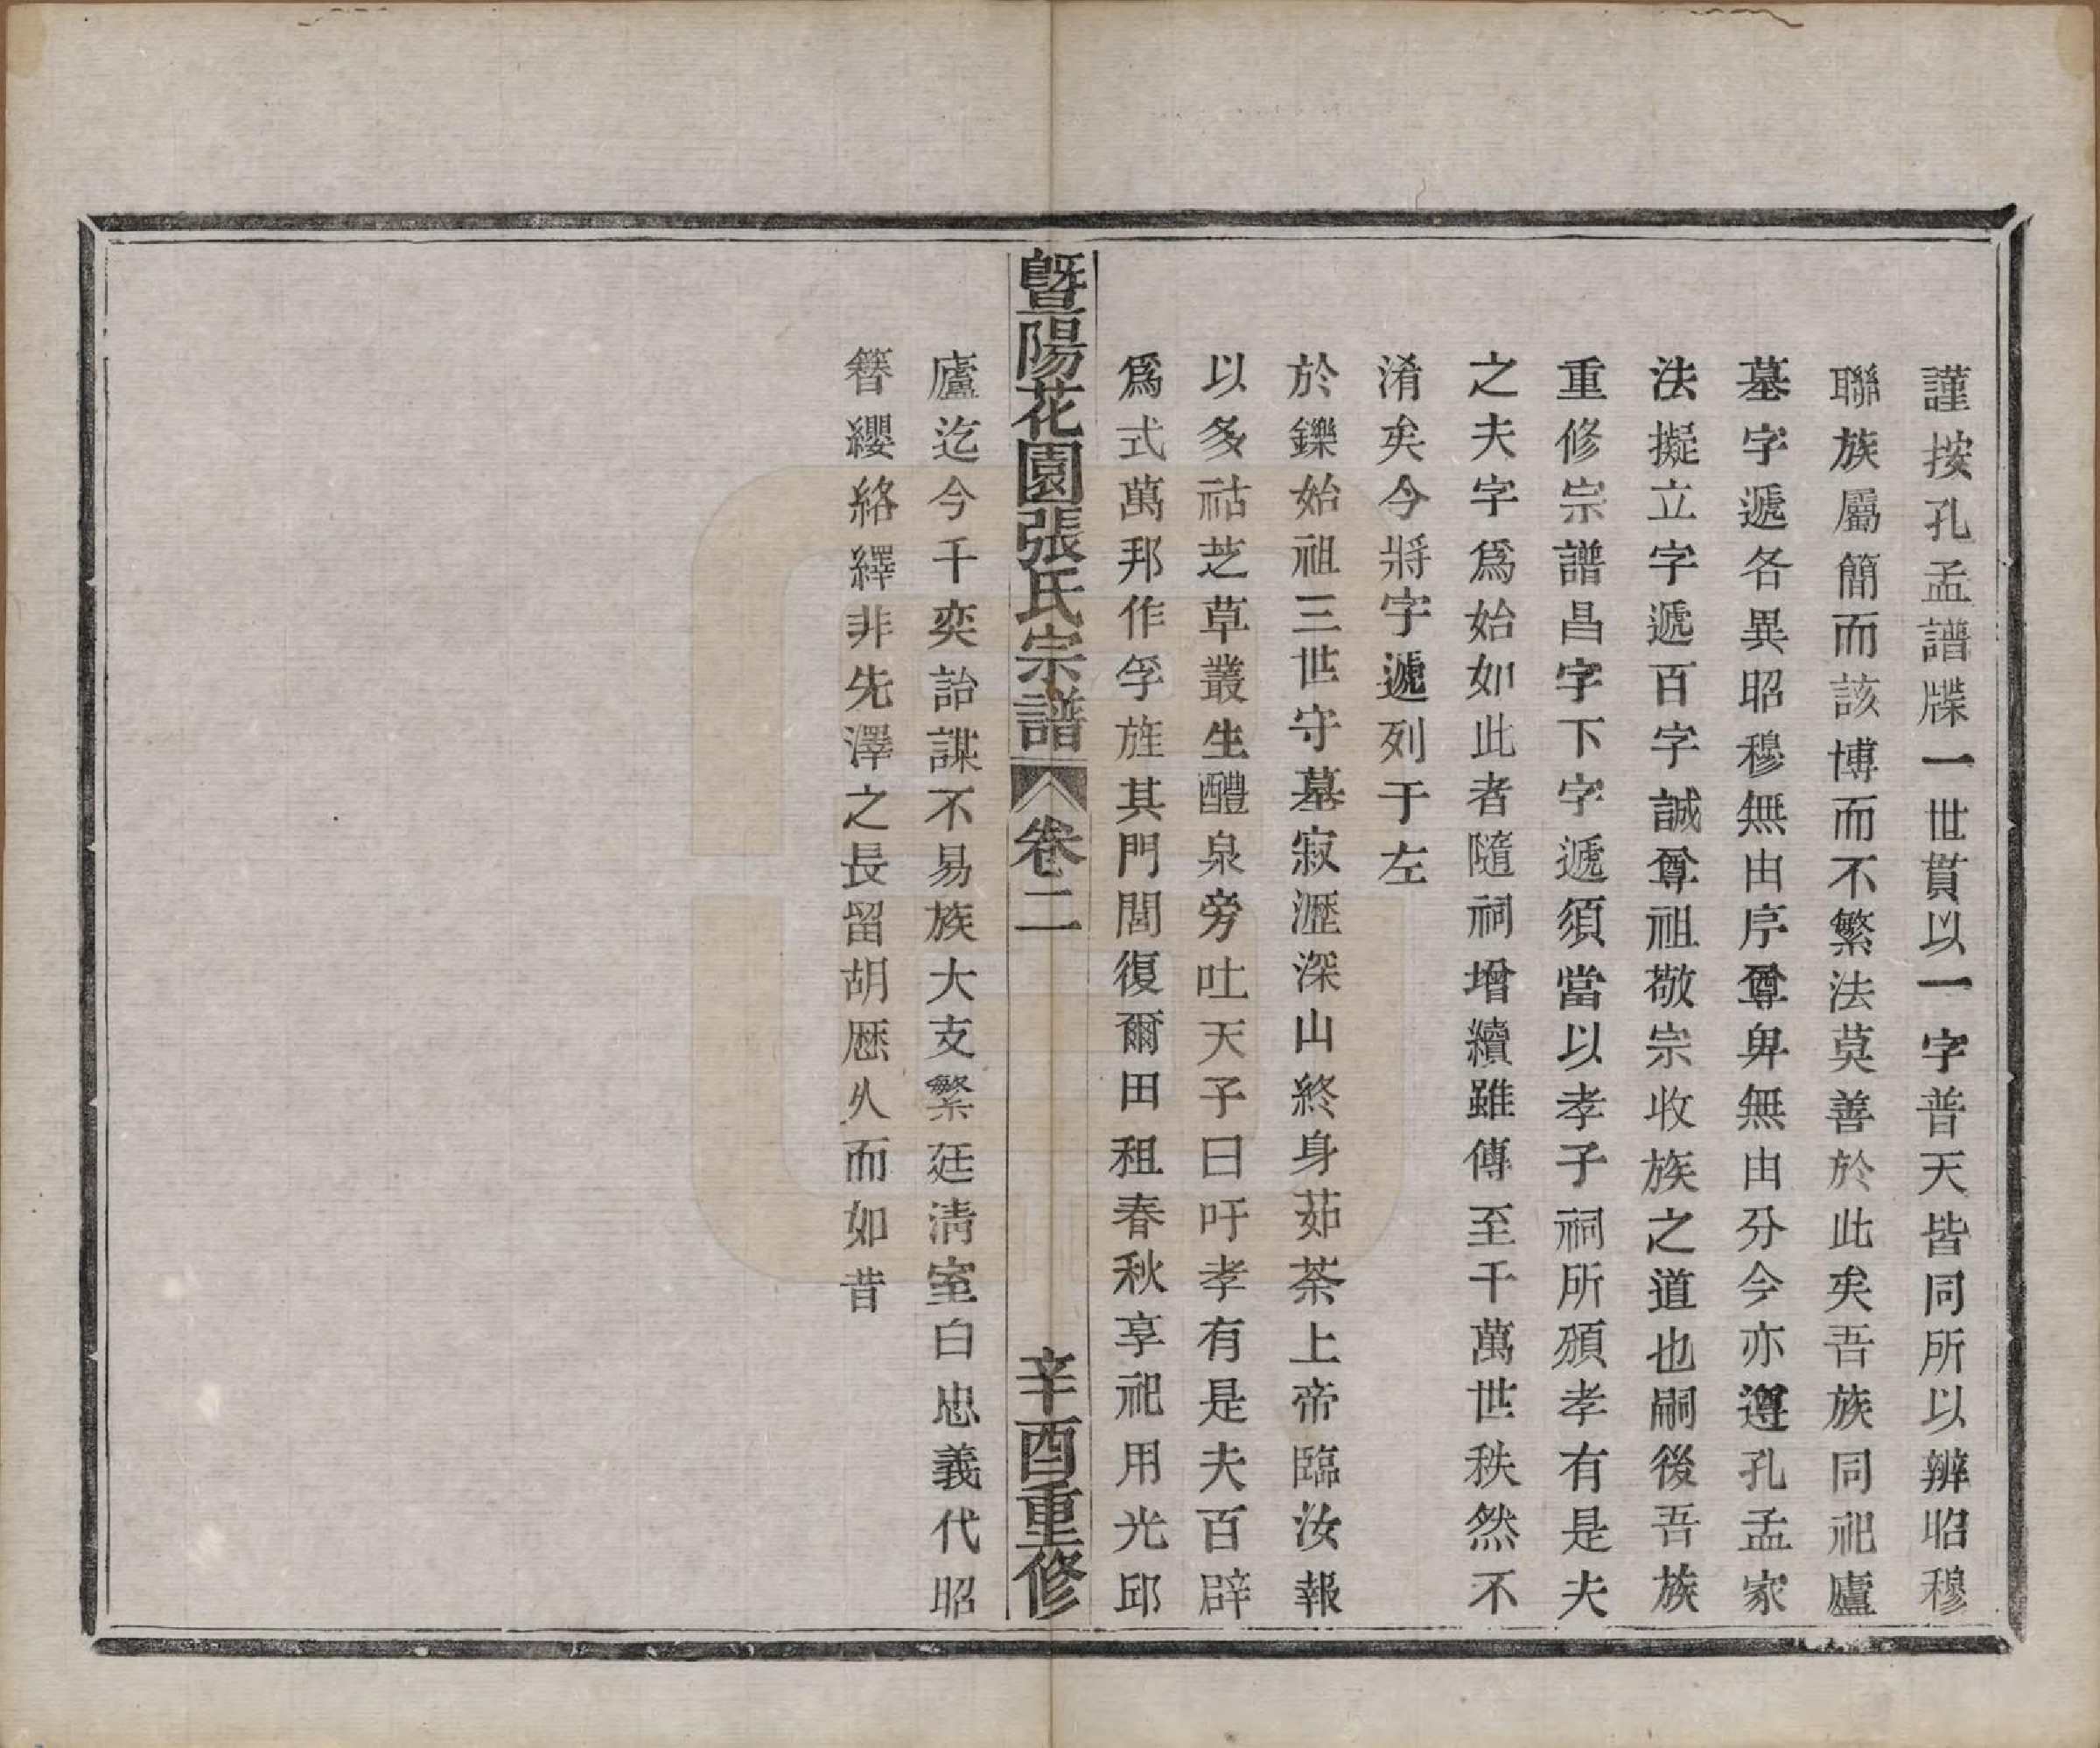 謹按孔孟譜牒一世貫以一字普天皆同所以辨昭穆
聯族屬簡而該博而不繁法莫善於此矣吾族同祀廬
墓字遞各異昭穆無由序尊卑無由分今亦遵孔孟家
法擬立字遞百字誠尊祖敬宗收族之道也嗣後吾族
重修宗譜昌字下字遞須當以孝子祠所頒孝有是夫
之夫字爲始如此者隨祠增續雖傳至千萬世秩然不
淆矣今將字遞列于左
於鑠始祖三世守墓寂瀝深山終身茹荼上帝臨汝報
以多祜芝草叢生醴泉旁吐天子曰吁孝有是夫百辟
爲式萬邦作孚旌其門閭復爾田租春秋享祀用光邱
暨陽花園張氏宗譜 卷二 辛酉重修
廬迄今千奕詒謀不易族大支繁廷淸室白忠義代昭
簪纓絡繹非先澤之長留胡歷久而如昔